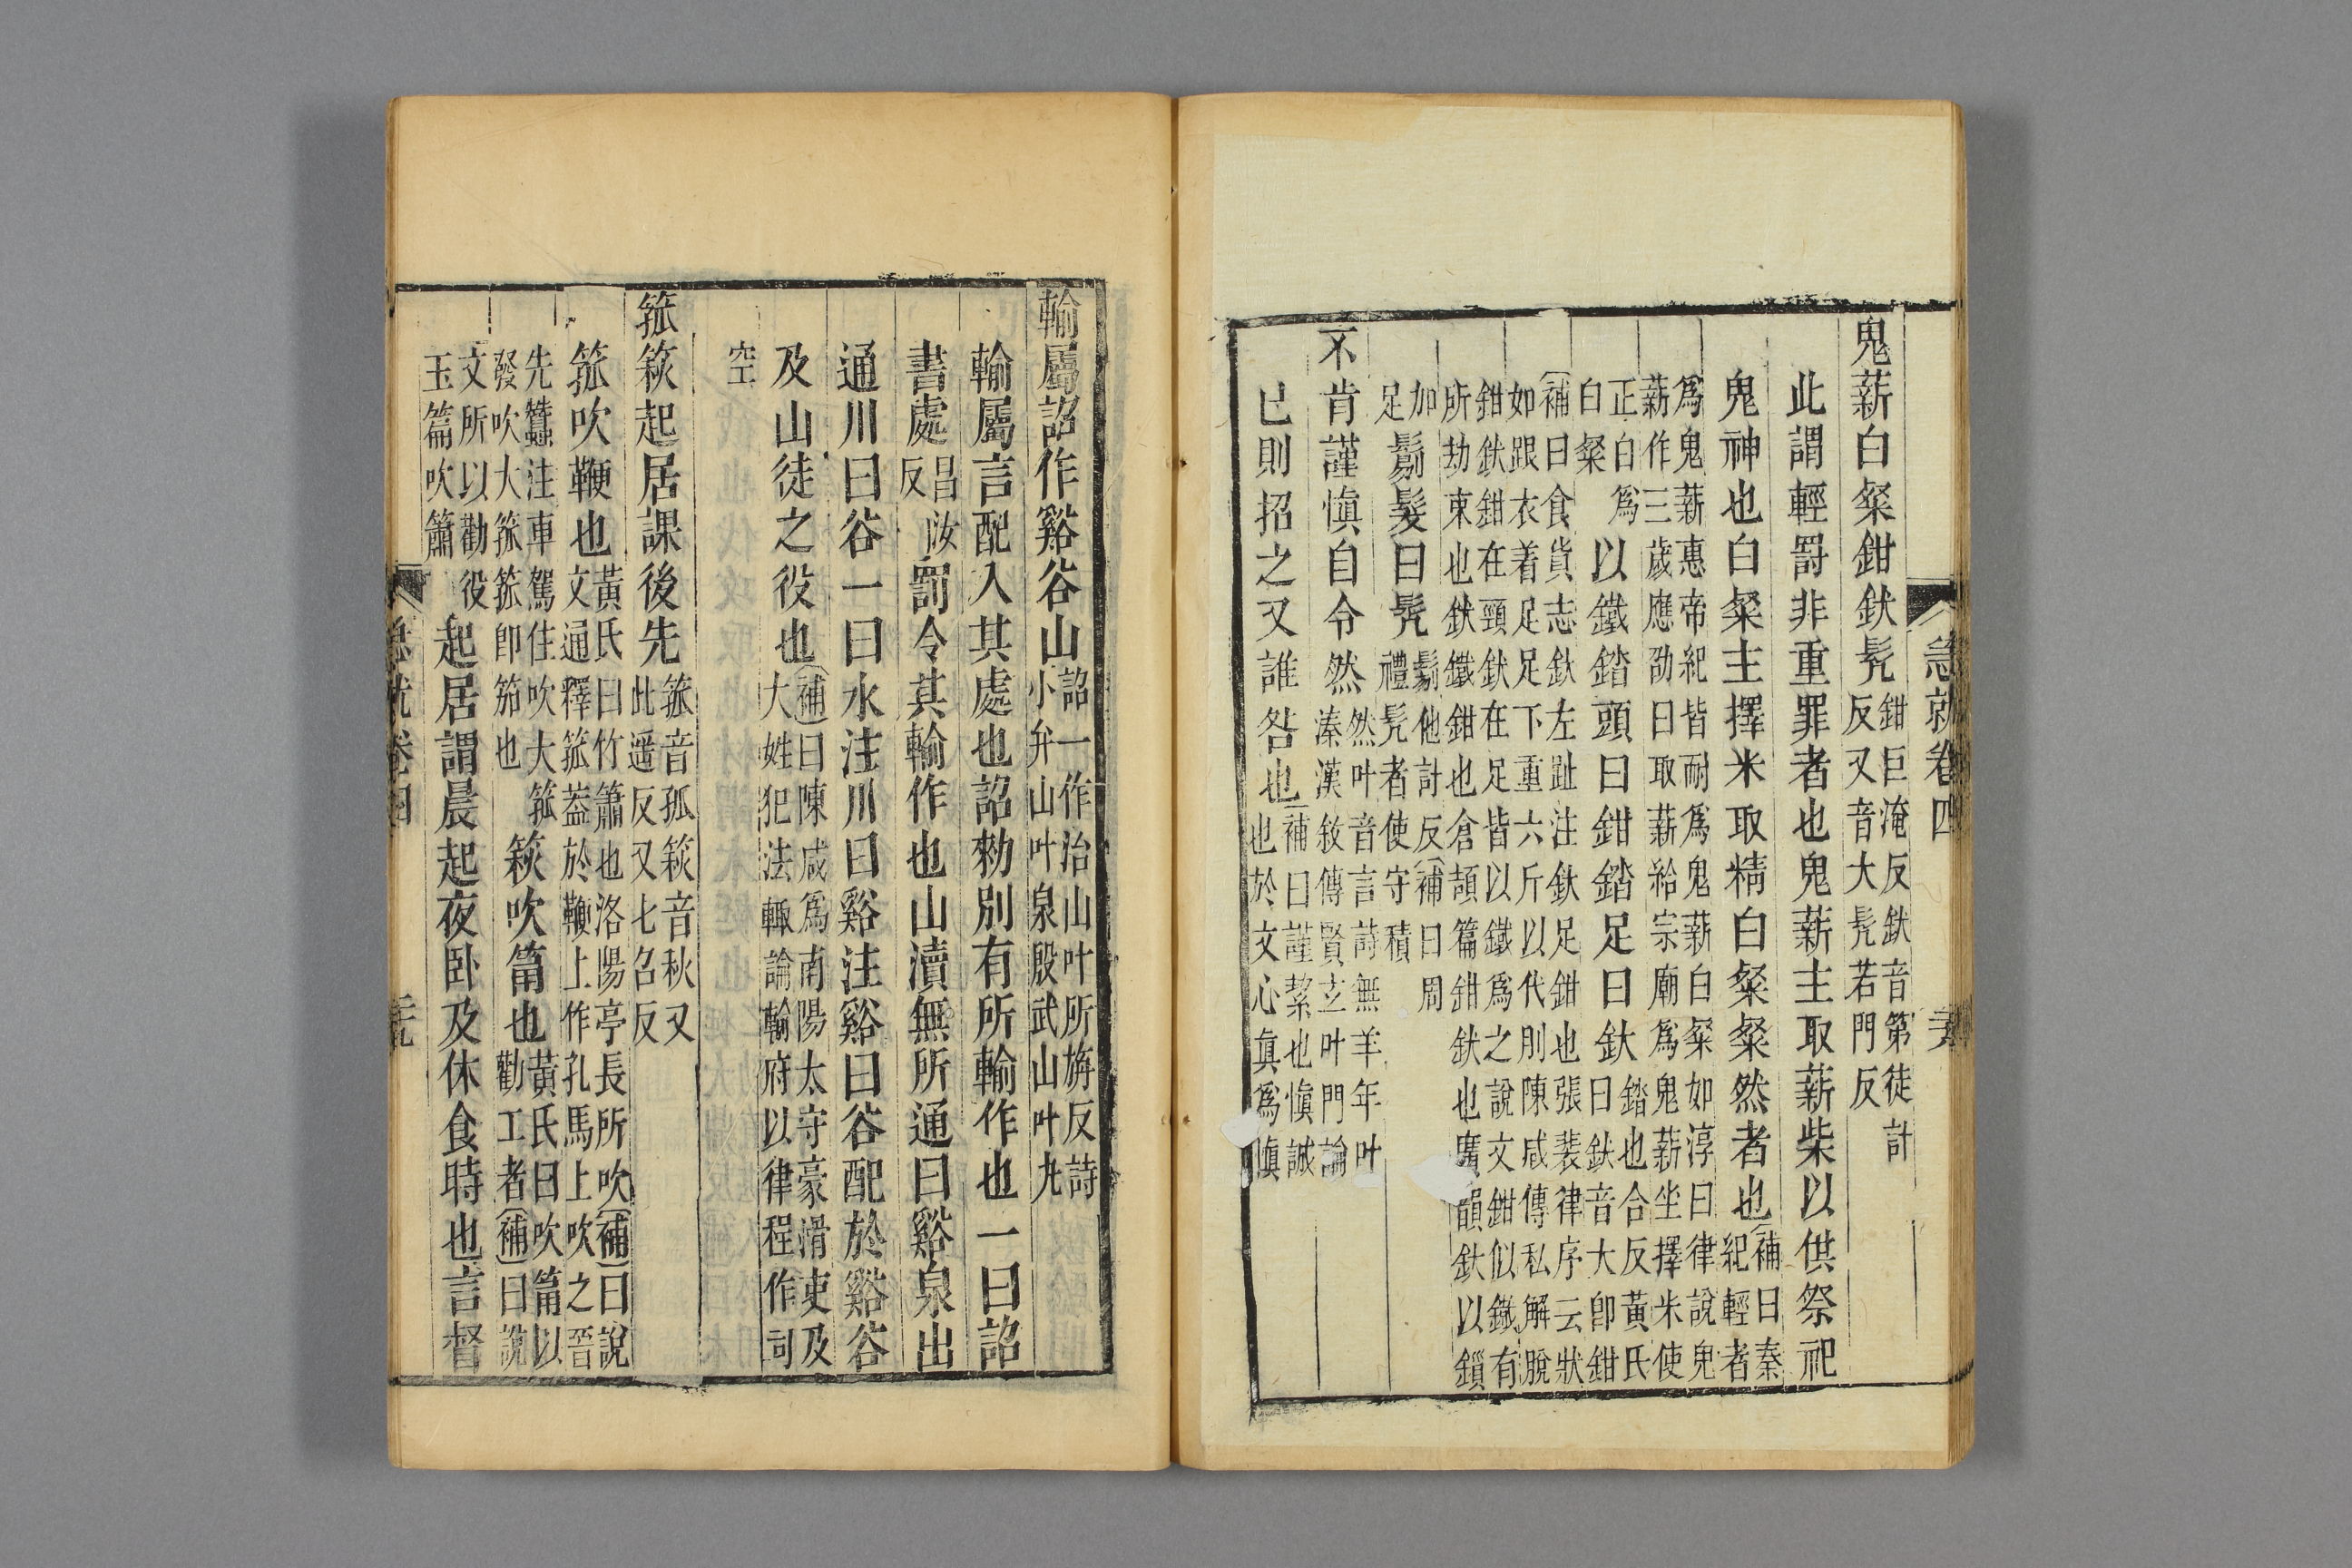 急就卷四
鬼薪白粲鉗釱髠
鉗巨淹反釱音第徒計
反又音大髠若門反
此謂輕罸非重罪者也鬼薪主取薪柴以供祭祀
鬼神也白粲主擇米取精白粲粲然者也
〔補〕曰秦
紀輕者
爲鬼薪惠帝紀皆耐爲鬼薪白粲如淳曰律說鬼
薪作三歲應劭曰取薪給宗廟爲鬼薪坐擇米使
正白爲
白粲
以鐵踏頭曰鉗踏足曰釱
踏也合反黃氏
曰釱音大卽鉗
〔補〕曰食貨志釱左趾注釱足鉗也張裴律序云狀
如跟衣着足足下重六斤以代刖陳咸傳私解脫
鉗釱鉗在頸釱在足皆以鐵爲之說文鉗似鐵有
所劫束也釱鐵鉗也倉頡篇鉗釱也廣韻釱以鎻
加
足
鬄髮曰髠
鬄他計反〔補〕曰周
禮髠者使守積
不肯謹愼自令然
然叶音言詩無羊年叶
溱漢敘傳賢玄叶門論
已則招之又誰咎也
〔補〕曰謹絜也愼誠
也於文心眞爲愼
輸屬詔作谿谷山
詔一作治山叶所旃反詩
小弁山叶泉殷武山叶九
輸屬言配入其處也詔勑別有所輸作也一曰詔
書處
昌汝
反
罰令其輸作也山瀆無所通曰谿泉出
通川曰谷一曰水注川曰谿注谿曰谷配於谿谷
及山徒之役也
〔補〕曰陳咸爲南陽太守豪滑吏及
大姓犯法輒論輸府以律程作司
空
箛篍起居課後先
箛音孤篍音秋又
此遥反又七召反
箛吹鞭也
黃氏曰竹簫也洛陽亭長所吹〔補〕曰說
文通釋箛葢於鞭上作孔馬上吹之晉
先蠶注車駕住吹大箛
發吹大箛箛卽笳也
篍吹筩也
黃氏曰吹筩以
勸工者〔補〕曰說
文所以勸役
玉篇吹簫
起居謂晨起夜卧及休食時也言督
急就卷四
二九